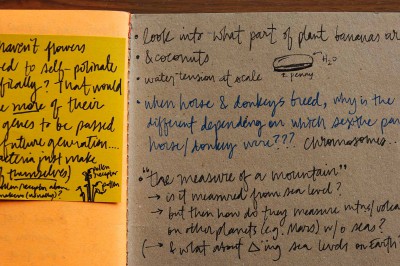 haven't flowers
ed to self-polinate
ifically? That would
e more of their
genes to be passed
future generation....
acteria just make
themselves)
pollen receptor
pollen
• look into what part of plant bananas ar
• & coconuts
• water tension at scale
H₂O
penny
• when horse & donkeys breed, why is the
different depending on which sex the par
horse/donkey were??? chromosomes..
• "the measure of a mountain"
→ is it measured from sea level?
→ but then how do they measure mtns/volca
on other planets (eg. Mars) w/o seas?
(→ & what about Δ'ing sea levels on Earth?